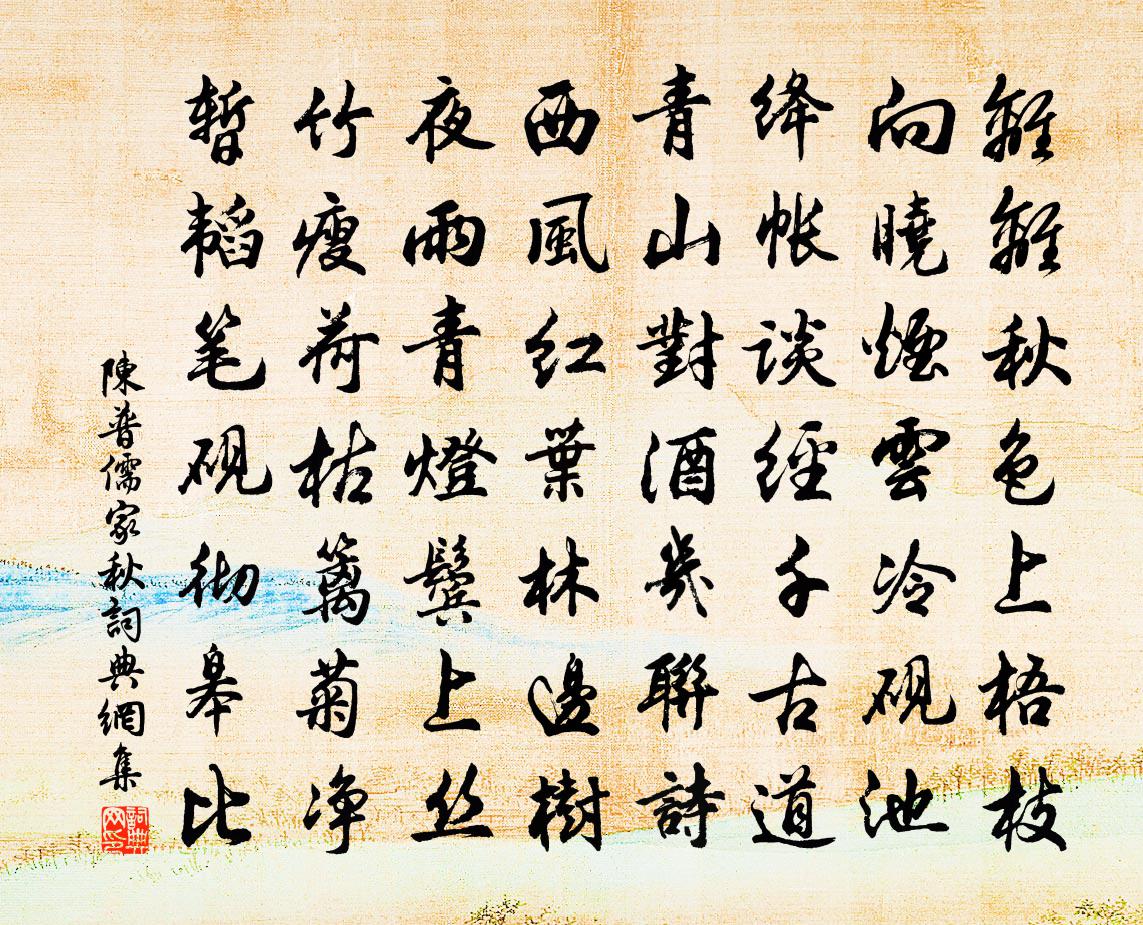 離離秋色上梧枝
向曉煙雲冷硯池
絳帳談經千古道
青山對酒幾聯詩
西風紅葉林邊樹
夜雨青燈鬢上絲
竹瘦荷枯籬菊净
暫韜笔硯彻皋比
陳普儒家秋詞典網集